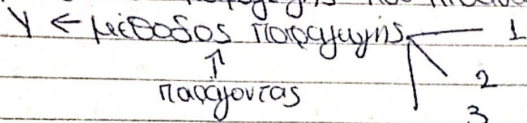 Υ ← μέθοδος παραγωγής 1
2
παράγοντας
3